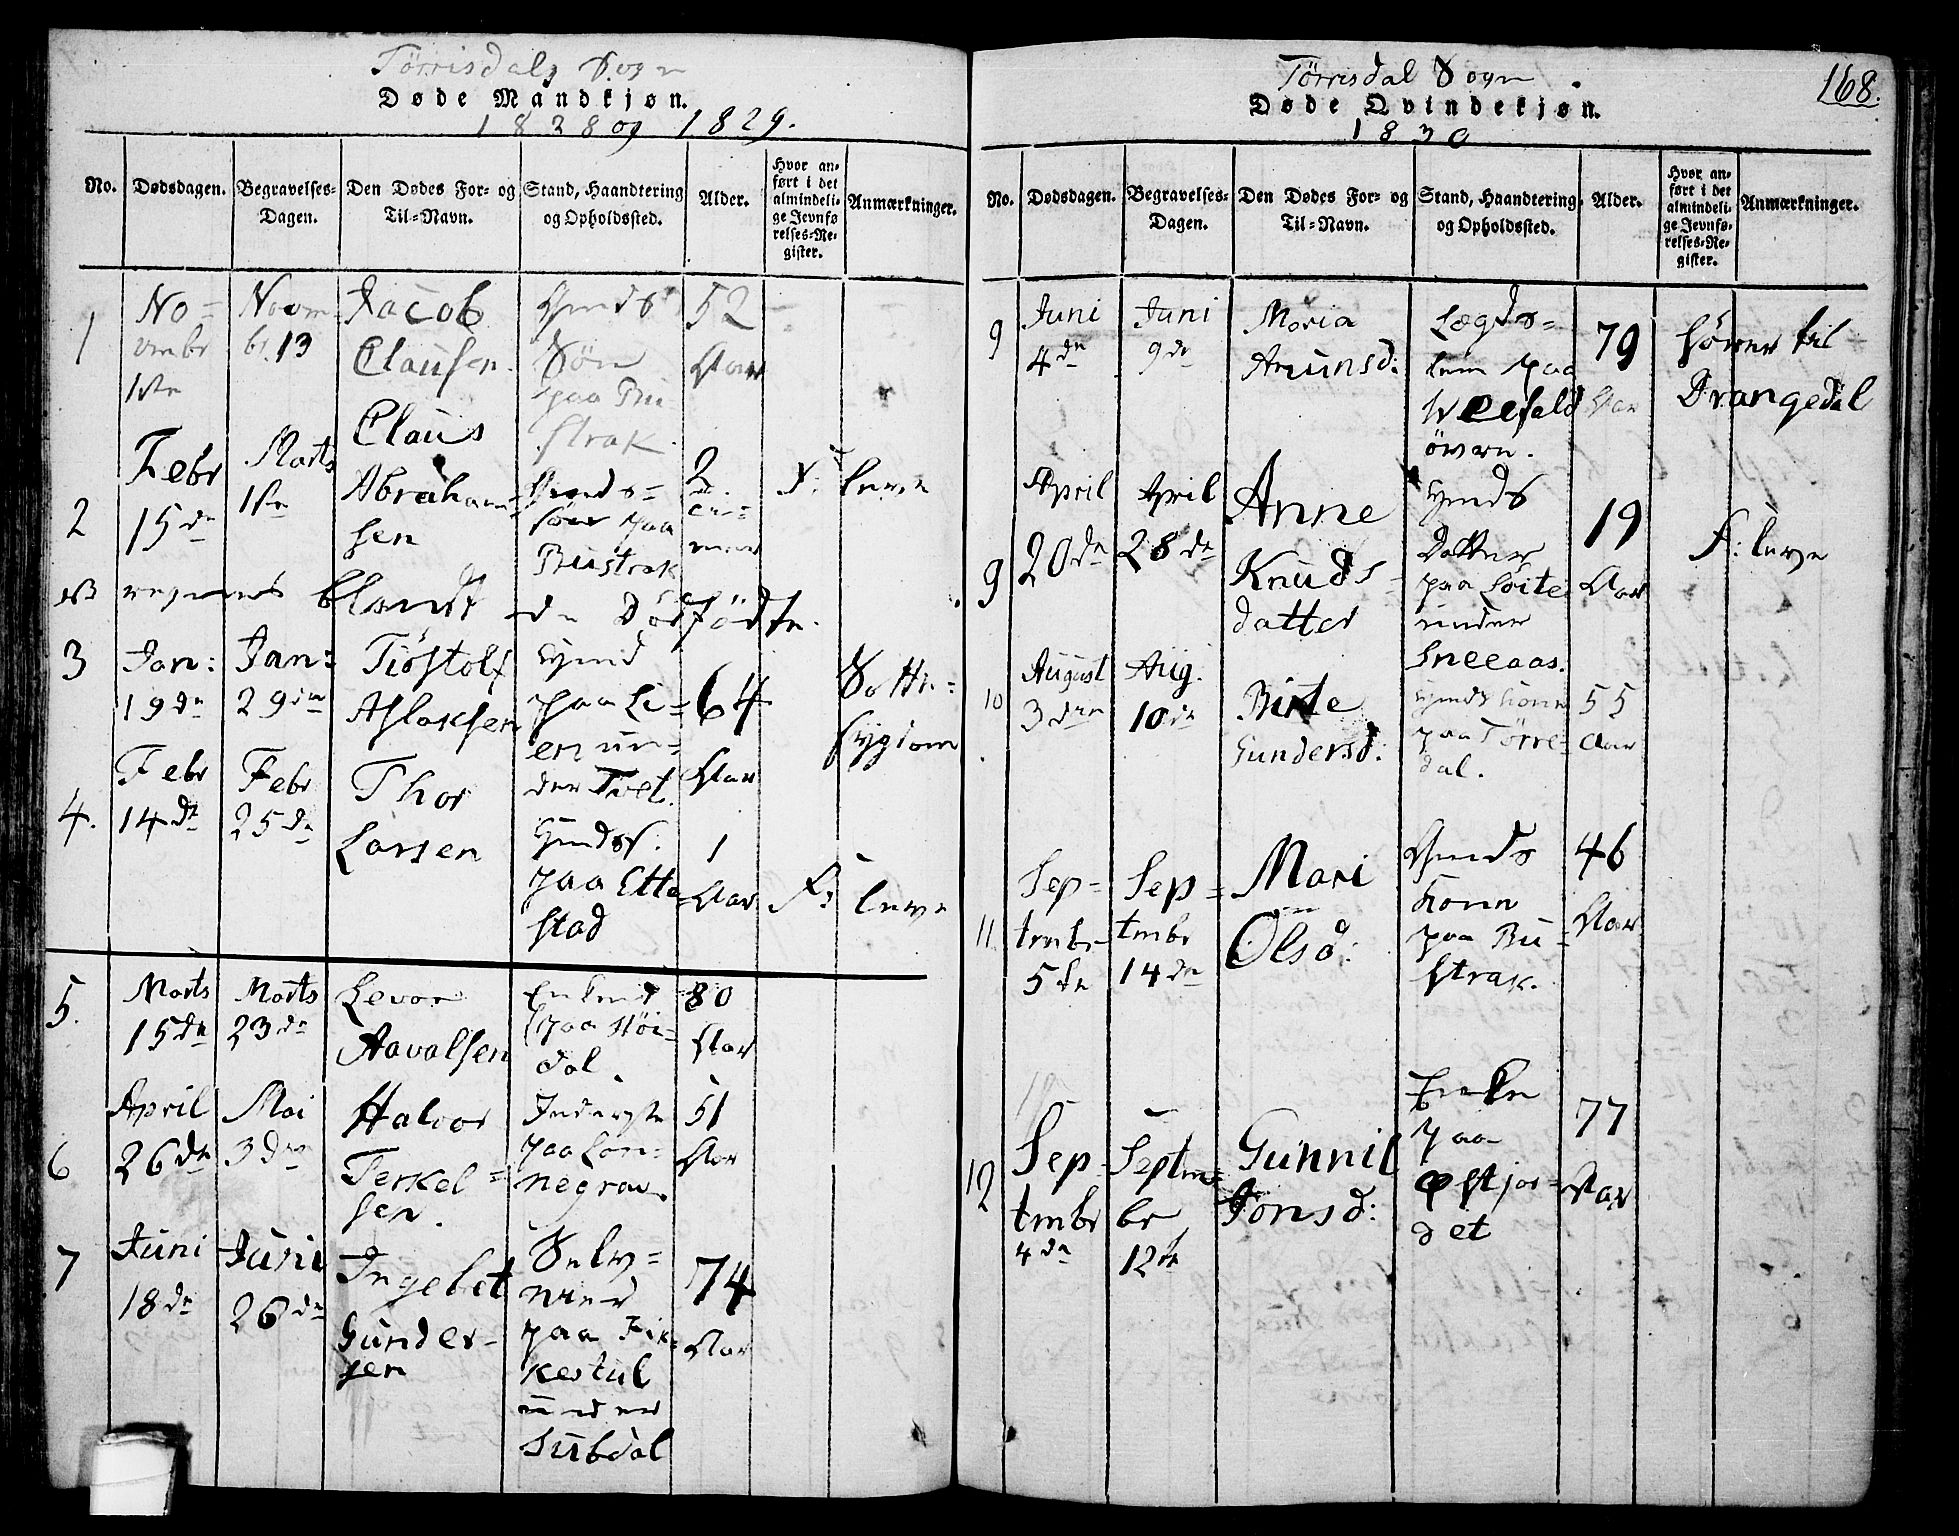 Törrisdals Sogn
Døde Mandkjøn.
1828 og 1829.
No. Dødsdagen. Begravelses-Dagen. Den Dødes For- og Til-Navn. Stand, Haandtering og Opholdssted. Alder. Hvor anført i det almindelige Jevnførelses-Register. Anmærkninger.
1 No=vmbr 1ste Novmbr. 13 Jacob Clausen Gmds Søn paa Bustrak 52 Aar
2 Febr 15de Marts 1ste Claus Abrahamsen Gmds= Søn paa Bustrak 2 F:
regnes blandt de Dödfödte.
3 Jan: 19de Jan: 29de Tiöstolf Aslaksen Gmd paa Lien under Tvet. 64 Aar Sottesygdom
4. Febr 14de Febr 25de Thor Larsen Gmds S. paa Ettestad 1 Aar F:
5. Marts 15de Marts 23de Levor Aavalsen paa Höidal. 80 Aar
6 April 26de Mai 3die Halvor Terkel=sen. Inderste paa Lonnegrav 51 Aar
7 Juni 18de Juni 26de Ingebet Gunder-sen paa Fikkestul under Subdal 74 Aar
168.
Törrisdal Sogn
Døde Qvindekjøn.
1830
No. Dødsdagen. Begravelses-Dagen. Den Dødes For- og Til-Navn. Stand, Haandtering, og Opholdssted. Alder. Hvor anført i det almindelige Jevnførelses-Register. Anmærkninger.
9 Juni 4de Juni 9de Maria Amunsd: Lægds=lem paa Weefald övern. 79 Aar hörer til Drangedal
9 April 20de April 28de Anne Knuds=datter Gmds Datter paa Löite under Sneeaas. 19 Aar F:
10 August 3die Aug. 10de Birte Gundersd: Gmds Kone paa Törredal. 55 Aar
11. Sep=tmbr 5de Sep=tmbr 14de Mari Olsd: Gmds Kone paa Bu=strak. 46 Aar
12 Sep-tmbr 4de Septm=br 12te Gunnil Jonsd: Enke paa Östjordet 77 Aar